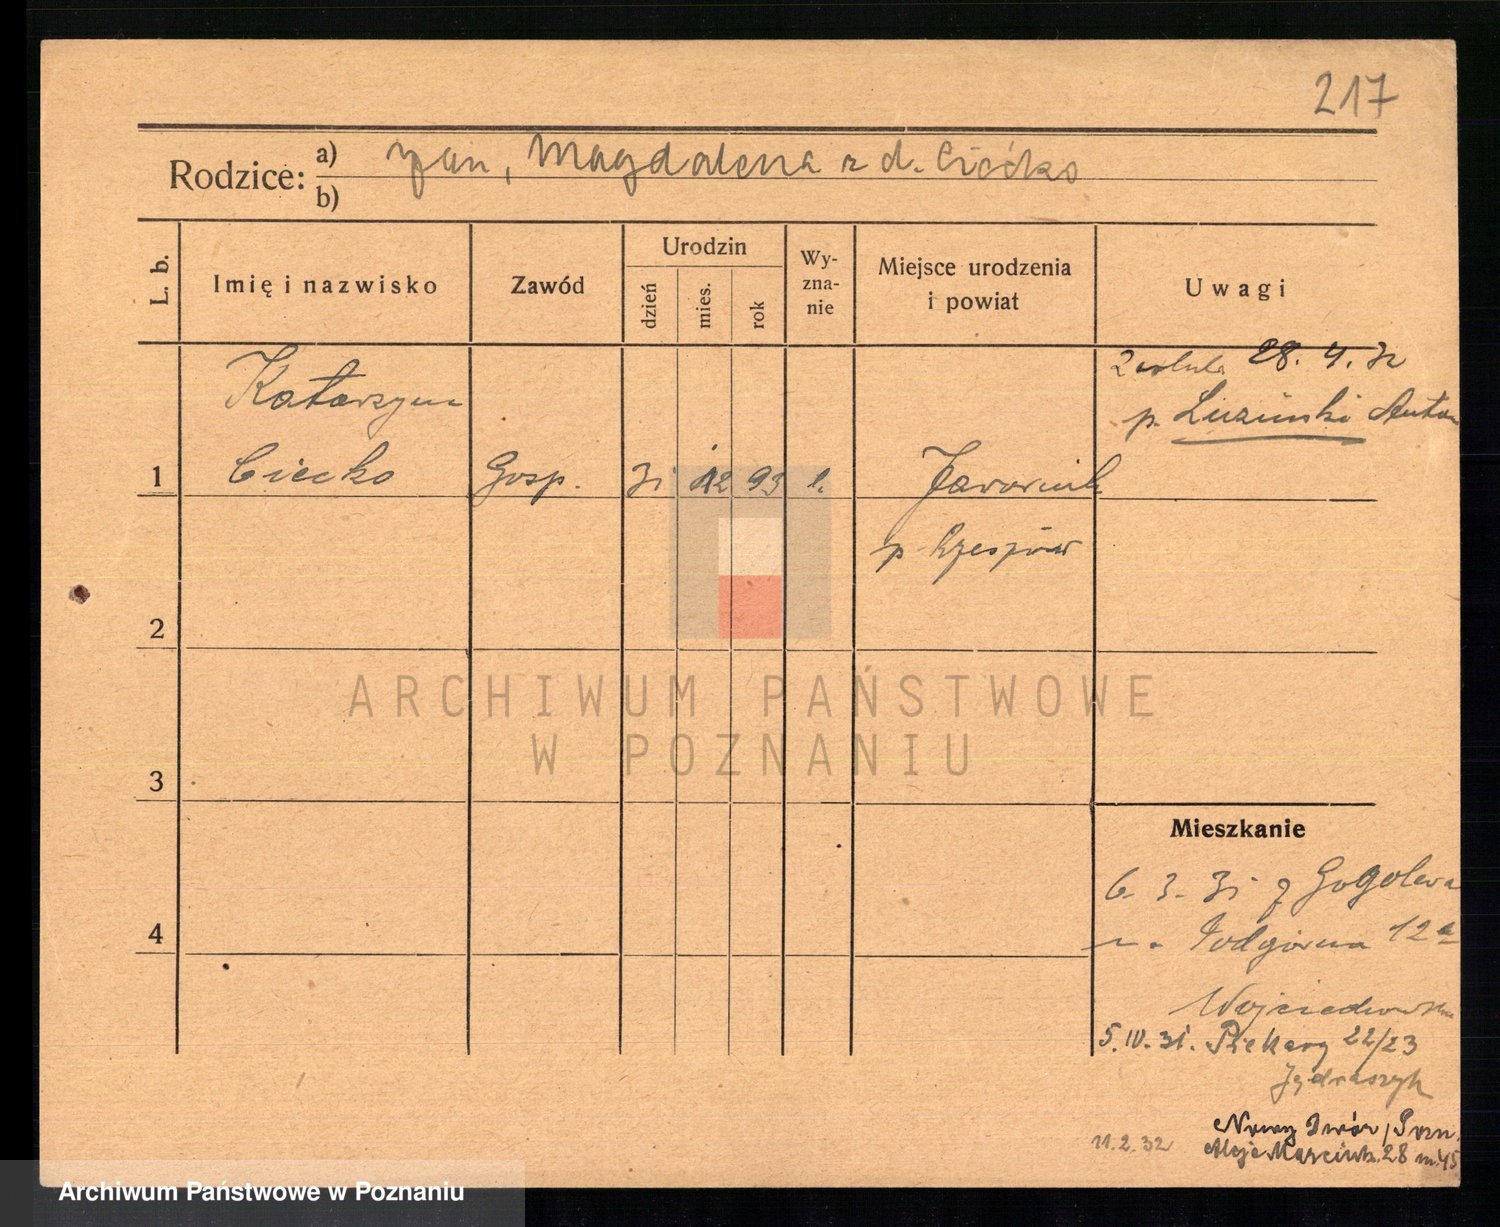 217
Rodzice: a) Jan, Magdalena z d. Ciećko
b)
L. b.
Imię i nazwisko
Zawód
Urodzin
dzień
mies.
rok
Wy-
zna-
nie
Miejsce urodzenia
i powiat
Uwagi
28. 4. 32
Katarzyna
p. Luzinski Anton
1 Ciecko Gosp. 31 12 93
p. Rzeszów
2
ARCHIWUM PAŃSTWOWE
W POZNANIU
3
Mieszkanie
6. 3. 31 z Gogolewa
4
Podgórna 12a
5. IV. 31. Piekary 22/23
11.2.32 Nowy Dwór, Pozn.
Aleje Marcink. 28 m. 45
Archiwum Państwowe w Poznaniu